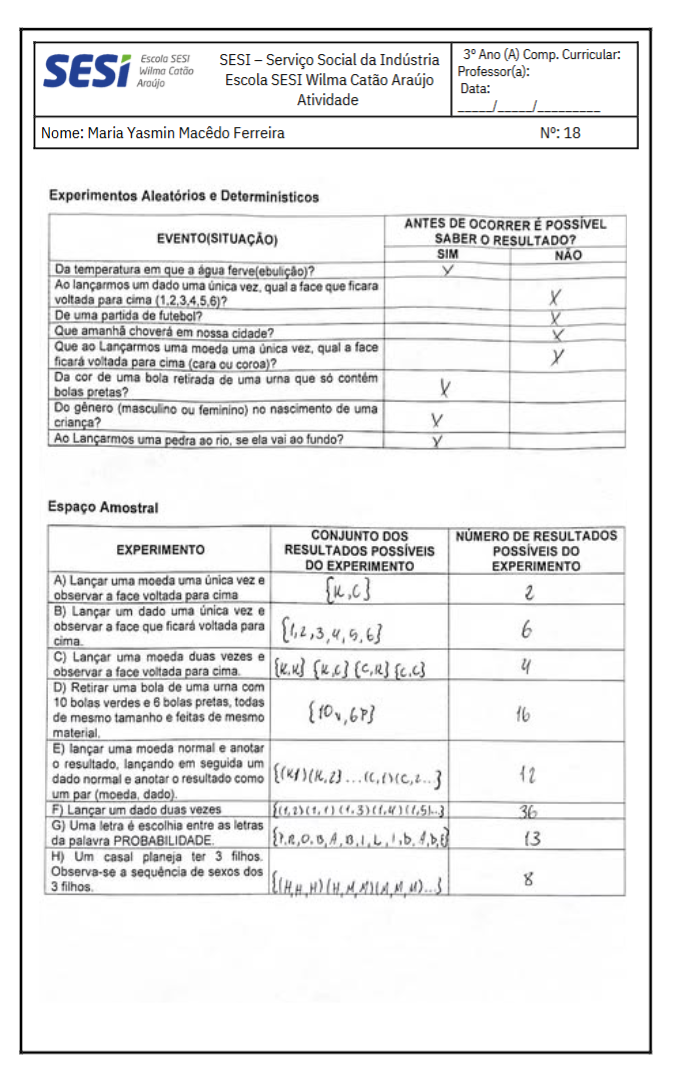 SESI
Escola SESI
Wilma Catão
Araújo
SESI – Serviço Social da Indústria
Escola SESI Wilma Catão Araújo
Atividade
3º Ano (A) Comp. Curricular:
Professor(a):
Data:
_____/_____/_________
Nome: Maria Yasmin Macêdo Ferreira Nº: 18
Experimentos Aleatórios e Determinísticos
EVENTO(SITUAÇÃO)
ANTES DE OCORRER É POSSÍVEL
SABER O RESULTADO?
SIM NÃO
Da temperatura em que a água ferve(ebulição)? X
Ao lançarmos um dado uma única vez, qual a face que ficara
voltada para cima (1,2,3,4,5,6)? X
De uma partida de futebol? X
Que amanhã choverá em nossa cidade? X
Que ao Lançarmos uma moeda uma única vez, qual a face
ficará voltada para cima (cara ou coroa)? X
Da cor de uma bola retirada de uma urna que só contém
bolas pretas? X
Do gênero (masculino ou feminino) no nascimento de uma
criança? X
Ao Lançarmos uma pedra ao rio, se ela vai ao fundo? X
Espaço Amostral
EXPERIMENTO
CONJUNTO DOS
RESULTADOS POSSÍVEIS
DO EXPERIMENTO
NÚMERO DE RESULTADOS
POSSÍVEIS DO
EXPERIMENTO
A) Lançar uma moeda uma única vez e
observar a face voltada para cima
{K,C}
2
B) Lançar um dado uma única vez e
observar a face que ficará voltada para
cima.
{1,2,3,4,5,6}
6
C) Lançar uma moeda duas vezes e
observar a face voltada para cima.
{K,K} {K,C} {C,K} {C,C}
4
D) Retirar uma bola de uma urna com
10 bolas verdes e 6 bolas pretas, todas
de mesmo tamanho e feitas de mesmo
material.
{10v,6P}
16
E) lançar uma moeda normal e anotar
o resultado, lançando em seguida um
dado normal e anotar o resultado como
um par (moeda, dado).
{(K,1)(K,2)...(C,1)(C,2...}
12
F) Lançar um dado duas vezes
{(1,2)(1,1)(1,3)(1,4)(1,5)...}
36
G) Uma letra é escolhia entre as letras
da palavra PROBABILIDADE.
{P,R,O,B,A,B,I,L,I,D,A,D,E}
13
H) Um casal planeja ter 3 filhos.
Observa-se a sequência de sexos dos
3 filhos.
{(H,H,H)(H,M,M)(M,M,M)...}
8